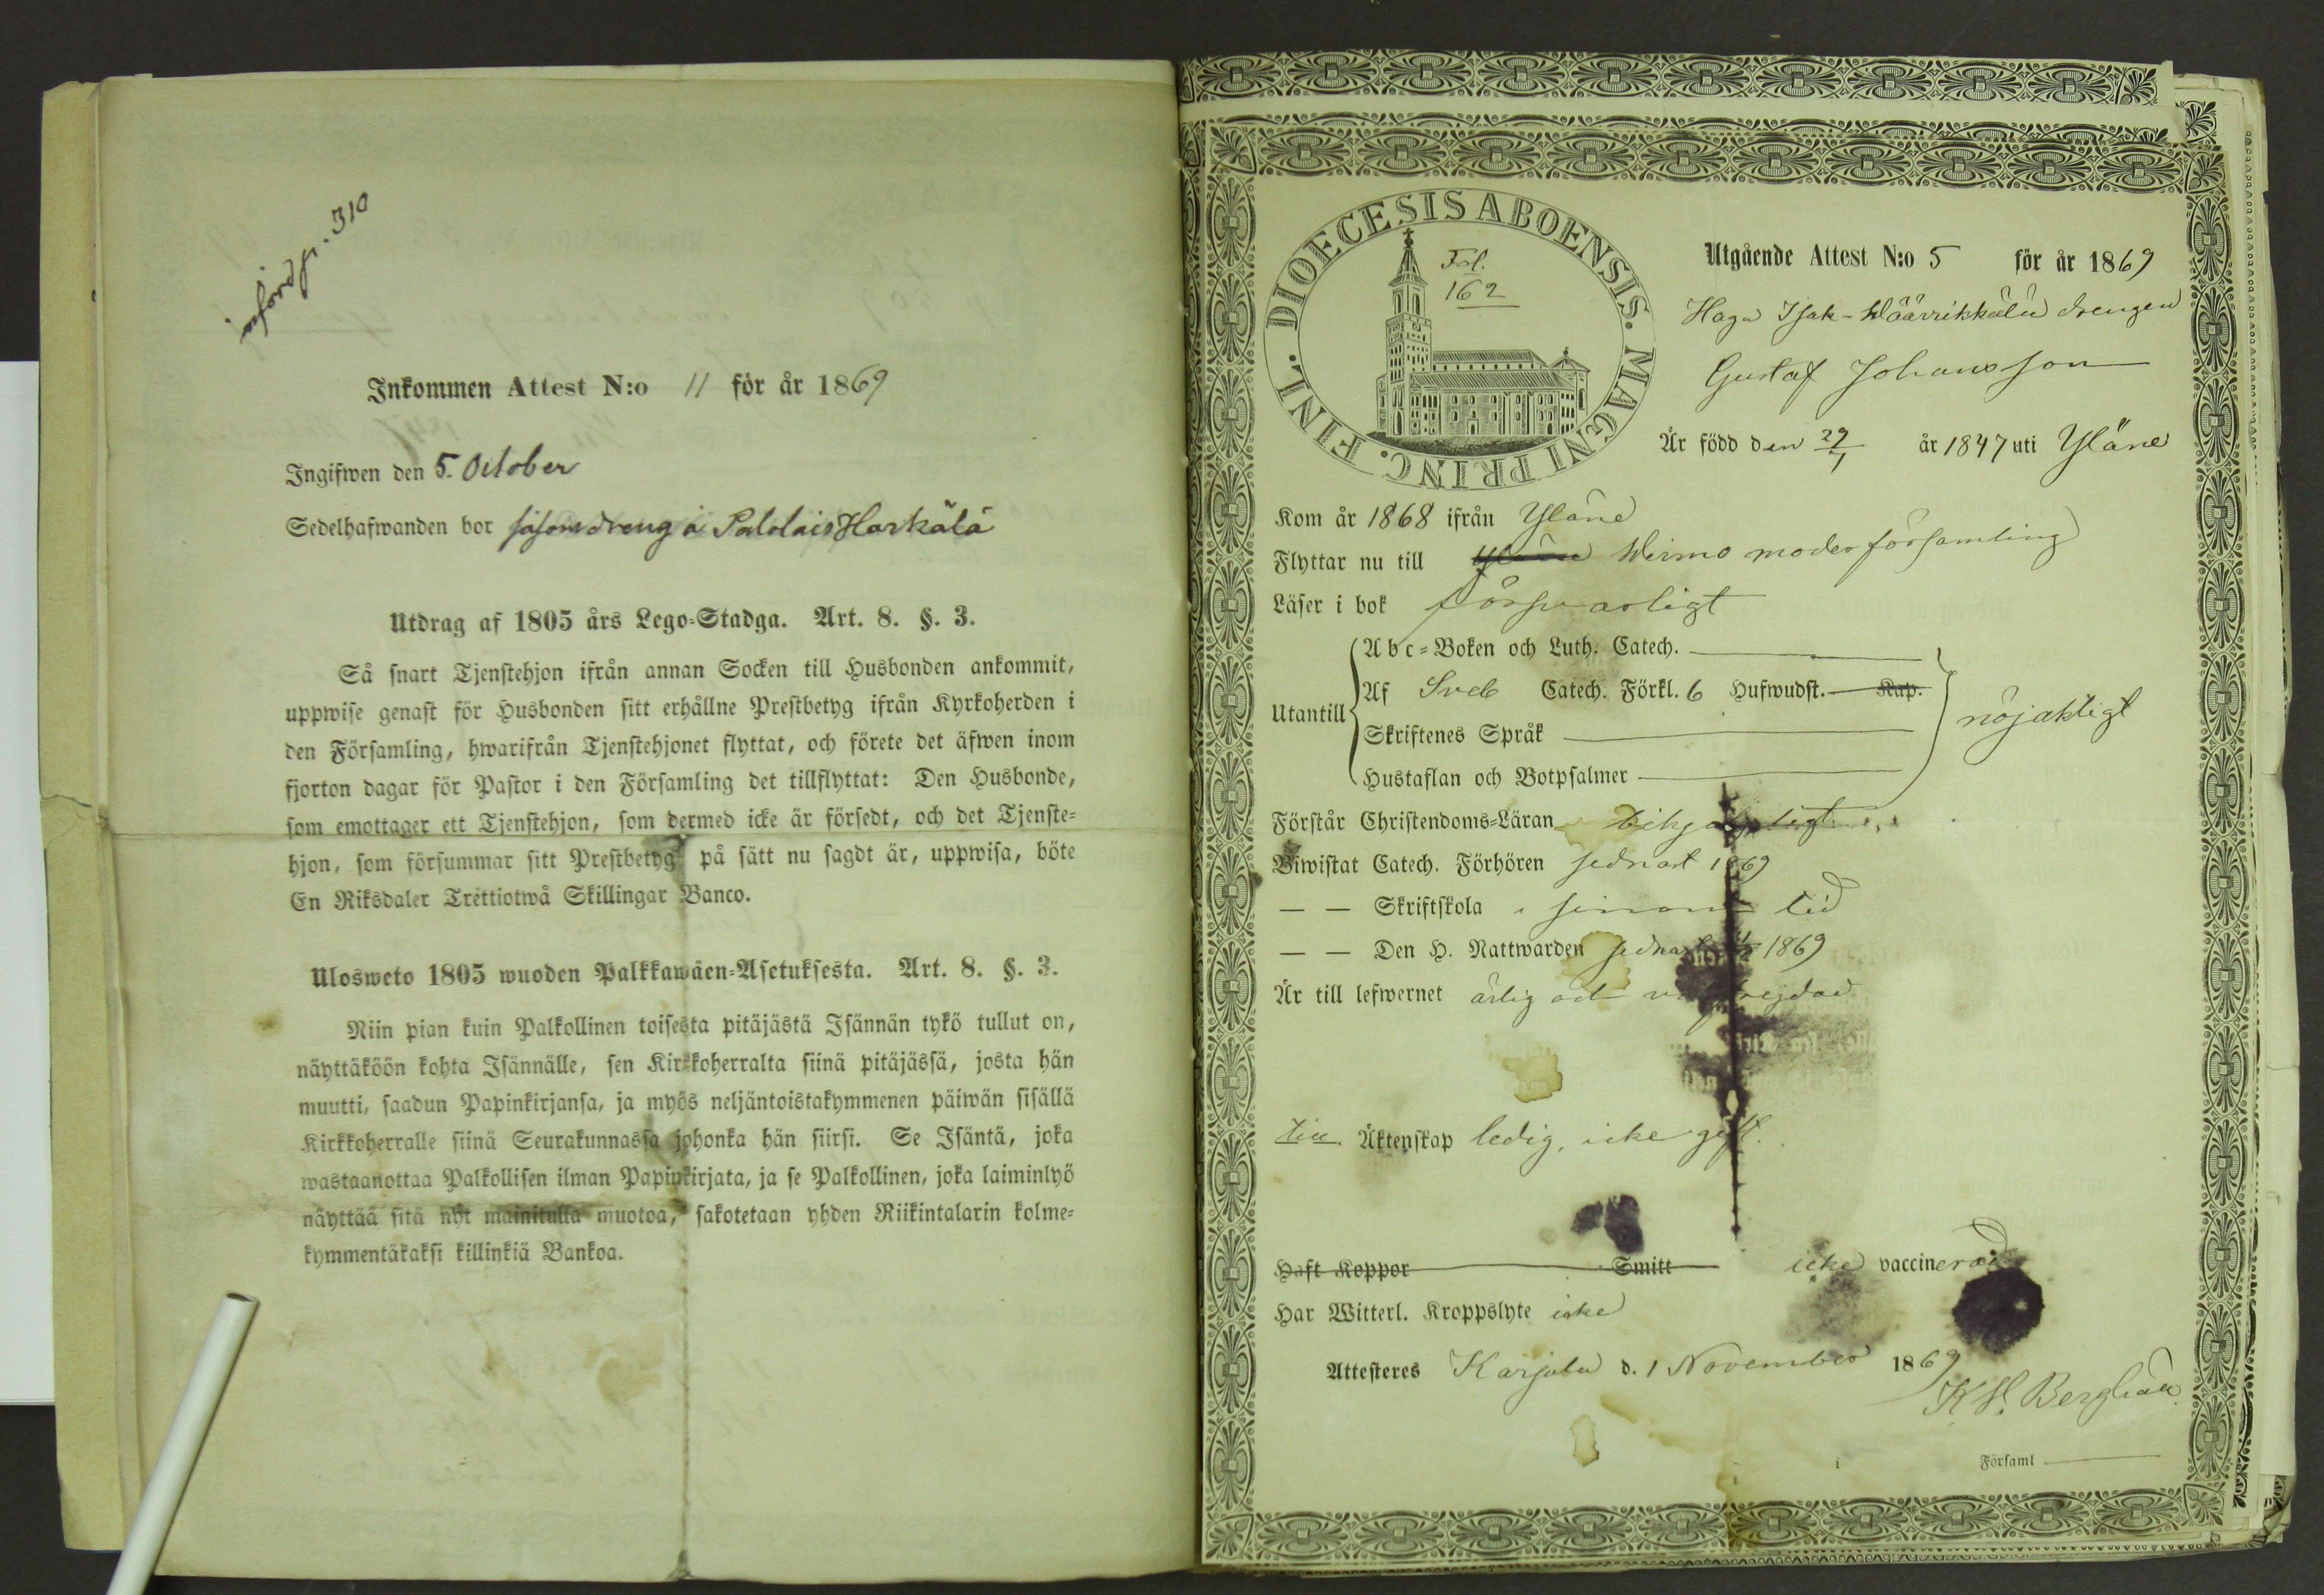 införd fr. 310
Inkommen Attest N:o 11 för år 1869
Ingifwen den 5. October
Sedelhafwanden bor såsom dreng å Saldais Harkälä
Utdrag af 1805 års Lego-Stadga. Art. 8. §. 3.
Så snart Tjenstehjon ifrån annan Socken till Husbonden ankommit,
uppwise genast för Husbonden sitt erhållne Prestbetyg ifrån Kyrkoherden i
den Församling, hwarifrån Tjenstehjonet flyttat, och förete det äfwen inom
fjorton dagar för Pastor i den Församling det tillflyttat: Den Husbonde,
som emottager ett Tjenstehjon, som dermed icke är försedt, och det Tjenste-
hjon, som försummar sitt Prestbetyg på sätt nu sagdt är, uppwisa, böte
En Riksdaler Trettiotwå Skillingar Banco.
Ulosweto 1805 wuoden Palkkawäen-Asetuksesta. Art. 8. §. 3.
Niin pian kuin Palkollinen toisesta pitäjästä Isännän tykö tullut on,
näyttäköön kohta Isännälle, sen Kirkkoherralta siinä pitäjässä, josta hän
muutti, saadun Papinkirjansa, ja myös neljäntoistakymmenen päiwän sisällä
Kirkkoherralle siinä Seurakunnassa johonka hän siirsi. Se Isäntä, joka
wastaanottaa Palkollisen ilman Papinkirjata, ja se Palkollinen, joka laiminlyö
näyttää sitä nyt mainitulla muotoa, sakotetaan yhden Riikintalarin kolme-
kymmentäkaksi killinkiä Bankoa.
DIOECESIS ABOENSIS. MAGNI PRINC. FINL.
Fol.
162
Utgående Attest N:o 5 för år 1869
Haga Isak-Wäärikkälä drengen
Gustaf Johansson
Är född den 29/1 år 1847 uti Yläne
Kom år 1868 ifrån Yläne
Flyttar nu till Yläne Wirmo moderförsamling
Läser i bok försvarligt
Utantill
Abc-Boken och Luth. Catech.
Af Sveb Catech. Förkl. 6 Hufwudst. Kap.
Skriftenes Språk
Hustaflan och Botpsalmer
nöjaktigt
Förstår Christendoms-Läran
Biwistat Catech. Förhören sednast 1869
— — Skriftskola i sinom tid
— — Den H. Nattwarden sednast 1869
Är till lefwernet ärlig och
till Äktenskap ledig, icke gift.
Haft Koppor Smitt icke vaccinerad
Har Witterl. Kroppslyte icke
Attesteres Karjala d. 1 November 1869
K H. Bergháll
i Församl